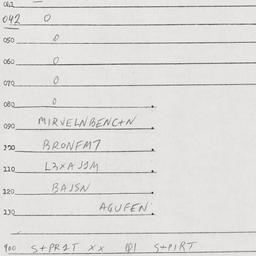 042 0
050 0
060 0
070 0
080 0
090 MIRVELNBENC+N
100 BRONFM7
110 L3XAJJM
120 BAJSN
130 AGUFEN
900 S+PR1T XX S+PIRT